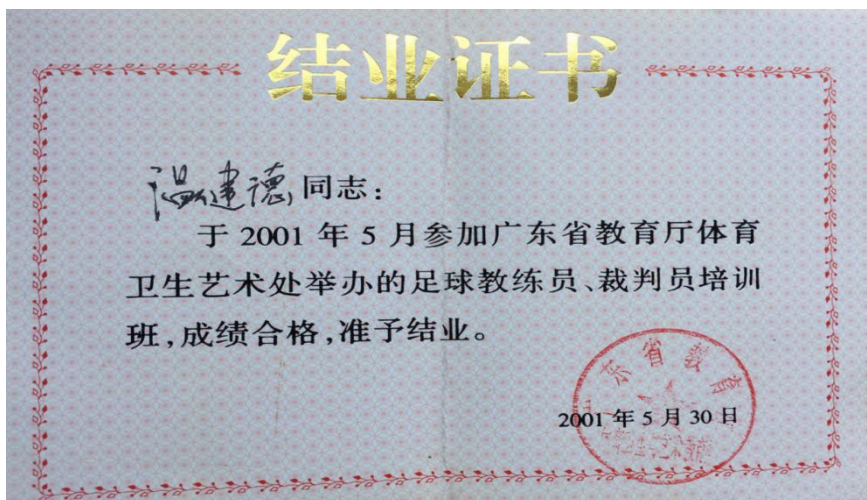 结业证书
温建德同志：
于 2001 年 5 月参加广东省教育厅体育
卫生艺术处举办的足球教练员、裁判员培训
班,成绩合格,准予结业。
广东省教育
2001 年 5 月 30 日